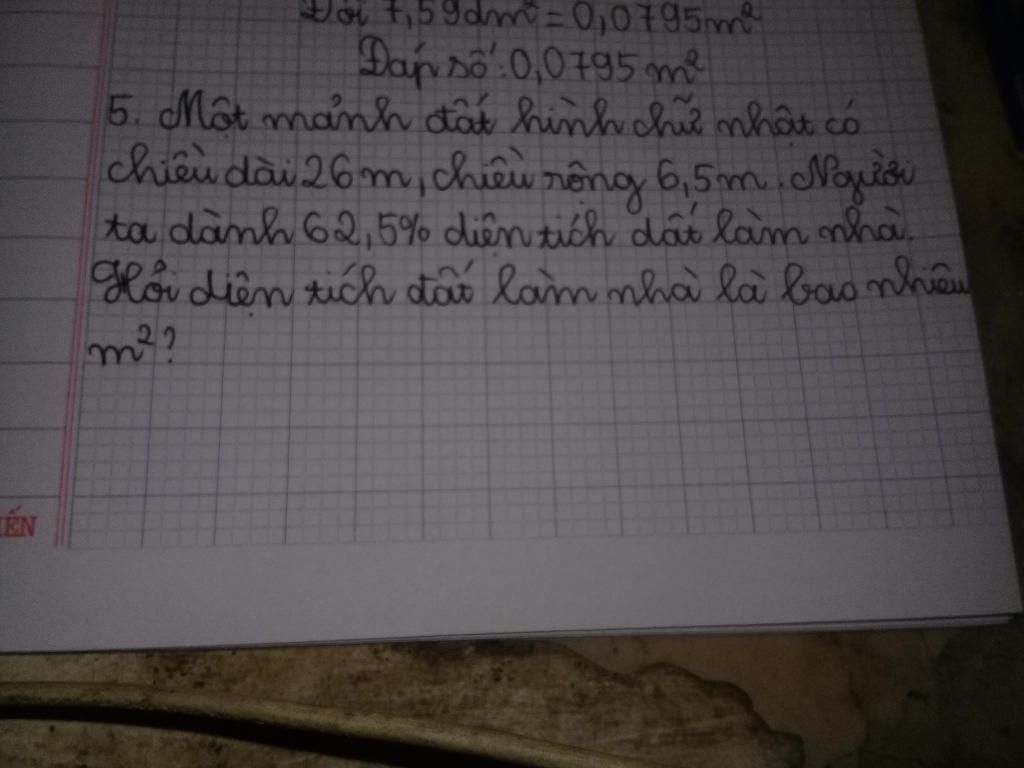 Đổi 7,59dm² = 0,0795m²
Đáp số: 0,0795m²
5. Một mảnh đất hình chữ nhật có
chiều dài 26m, chiều rộng 6,5m. Người
ta dành 62,5% diện tích đất làm nhà.
Hỏi diện tích đất làm nhà là bao nhiêu
m²?
ẾN